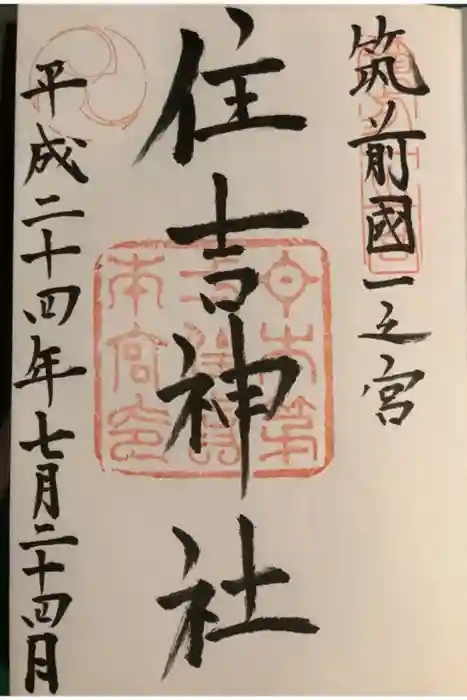 筑前國一之宮
住吉神社
平成二十四年七月二十四月